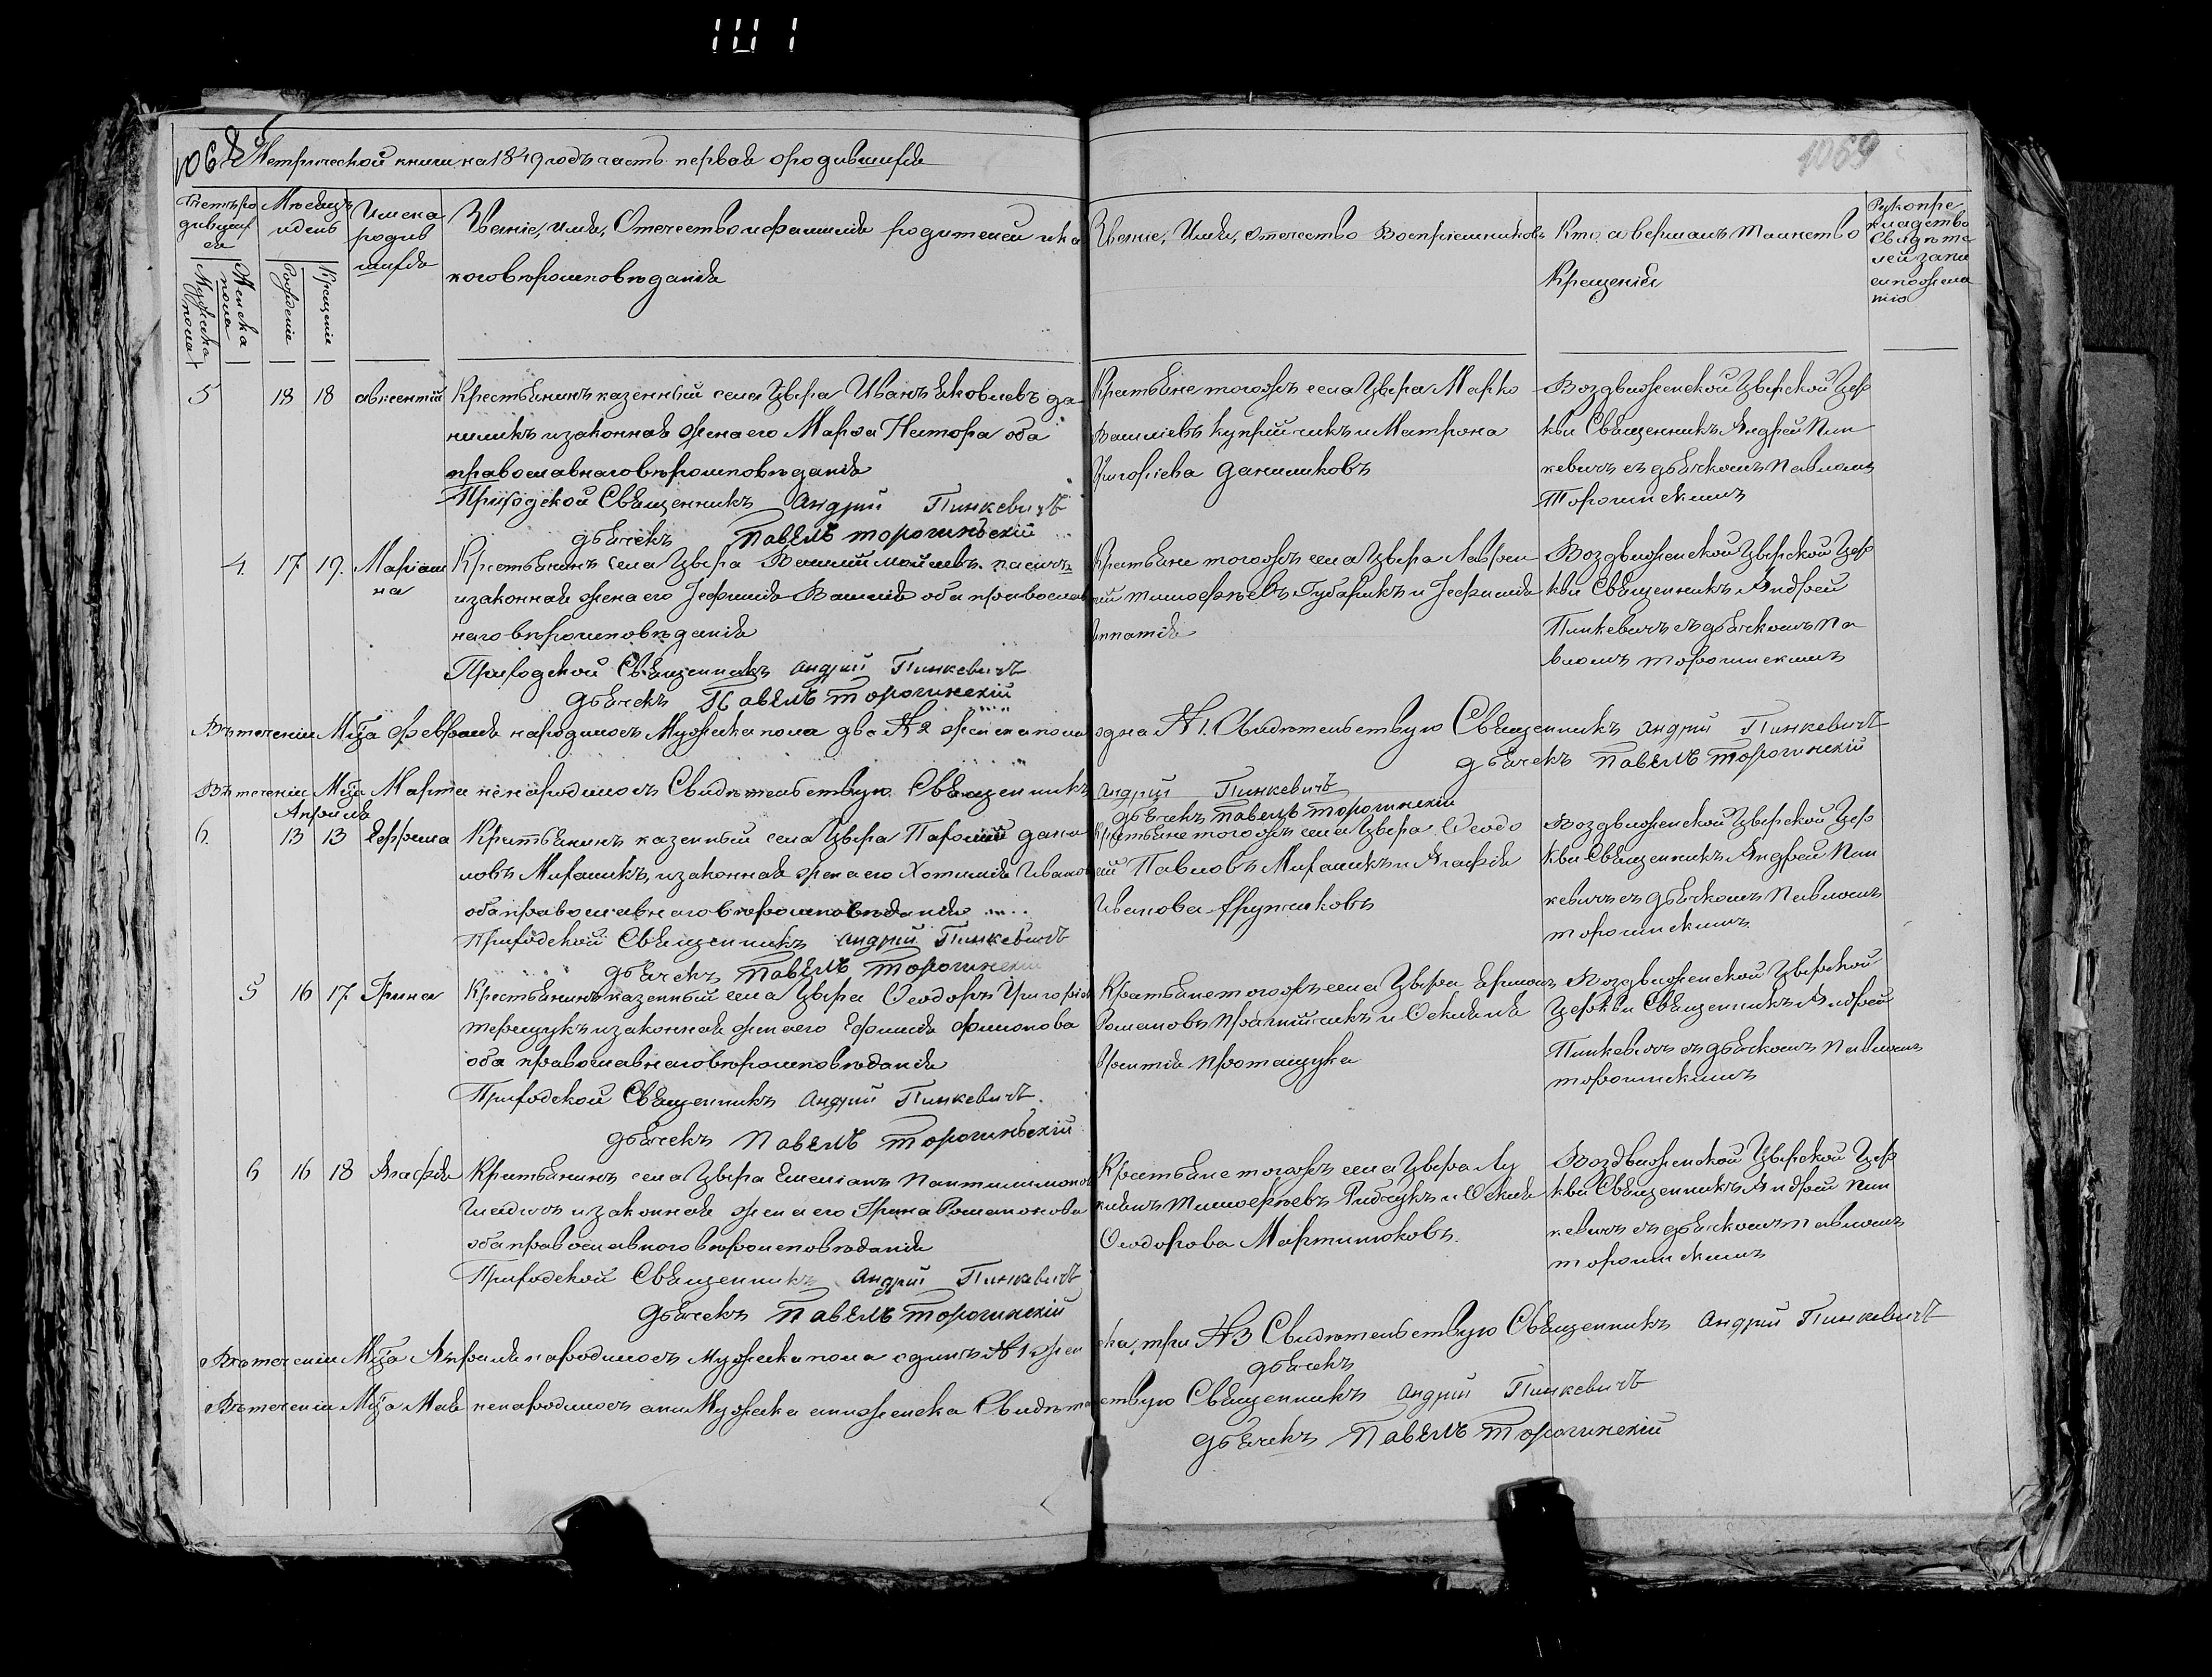 101
1068
Метрической книги на 1849 годъ часть первая о родившихся
1069
Счетъ ро
дивших
ся
Мужеска
пола
Женска
пола
Мѣсяцъ
и день
Рожденіе
Крещеніе
Имена
родив
шихся
Званіе, Имя, Отечество и фамилія родителей и ка
кого вѣроисповѣданія
Званіе, Имя, Отечество Воспріемниковъ
Кто совершалъ таинство
Крещенія
Рукопри
кладство
Свидѣте
лей запи
си по жела
нію
5 18 18 Авксентій
Крестьянинъ казенный села Цвера Иванъ Яковлевъ да
ниликъ и законная жена его Марѳа Нестора оба
православнаго вѣроисповѣданія
Приходской Священникъ Андрій Пинкевичъ
дьячекъ Павелъ Торочинскій
Крестьяне тогожъ села Цвера Марко
Василіевъ Куприйчикъ и Матрона
Григоріева Даниликовъ
Воздвиженской Цверской Цер
кви Священникъ Андрей Пин
кевичъ съ дьячкомъ Павломъ
Торочинскимъ
4. 17 19. Маріан
на
Крестьянинъ села Цвера Василій Мойсеевъ
и законная жена его Іефимія Василія оба православ
наго вѣроисповѣданія
Приходской Священникъ Андрій Пинкевичъ
дьячекъ Павелъ Торочинскій
Крестьяне тогожъ села Цвера Лаврен
тій Тимофѣевъ Губарикъ и Іефимія
Игнатія
Воздвиженской Цверской Цер
кви Священникъ Андрей
Пинкевичъ съ дьячкомъ Па
вломъ Торочинскимъ
Въ теченіи Мца Февраля народилось Мужеска пола два № 2 женска пола одна № 1. Свидѣтельствую Священникъ Андрій Пинкевичъ
дьячекъ Павелъ Торочинскій
Въ теченіи Мца Марта ненародилось Свидѣтельствую Священникъ Андрій Пинкевичъ
дьячекъ Павелъ Торочинскій
Апрѣля
6. 13 13 Ефрема
Крестьянинъ казенный села Цвера Парѳеній Дани
ловъ Михаликъ, и законная жена его Хотимія Иванов
оба православнаго вѣроисповѣданія
Приходской Священникъ Андрій Пинкевичъ
дьячекъ Павелъ Торочинскій
Крестьяне тогожъ села Цвера Ѳеодо
сій Павловъ Михаликъ и Агафія
Иванова
Воздвиженской Цверской Цер
кви Священникъ Андрей Пин
кевичъ съ дьячкомъ Павломъ
Торочинскимъ
5 16 17 Ірина
Крестьянинъ казенный села Цвера Ѳеодоръ Григоріев
Терещукъ и законная жена его Ефимія Филонова
оба православнаго вѣроисповѣданія
Приходской Священникъ Андрій Пинкевичъ.
дьячекъ Павелъ Торочинскій
Крестьяне тогожъ села Цвера
Романовъ и
Протащука
Воздвиженской Цверской
Церкви Священникъ Андрей
Пинкевичъ съ дьячкомъ Павломъ
Торочинскимъ
6 16 18 Агафія
Крестьянинъ села Цвера Емеліанъ Пантилимонов
и законная жена его Ірина Романонова
оба православного вѣроисповѣданія
Приходской Священникъ Андрій Пинкевичъ
дьячекъ Павелъ Торочинскій
Крестьяне тогожъ села Цвера Лу
кіянъ Тимофѣевъ Рибчукъ и
Ѳеодорова Мартинюковъ.
Воздвиженской Цверской Цер
кви Священникъ Андрей Пин
кевичъ съ дьячкомъ Павломъ
Торочинскимъ
Въ теченіи Мца Апрѣля народилось мужеска пола единъ № 1 жен ска, три № 3 Свидѣтельствую Священникъ Андрій Пинкевичъ
дьячекъ
Въ теченіи Мца Мая ненародилось ани Мужеска ани женска Свидѣте льствую Священникъ Андрій Пинкевичъ
дьячекъ Павелъ Торочинскій